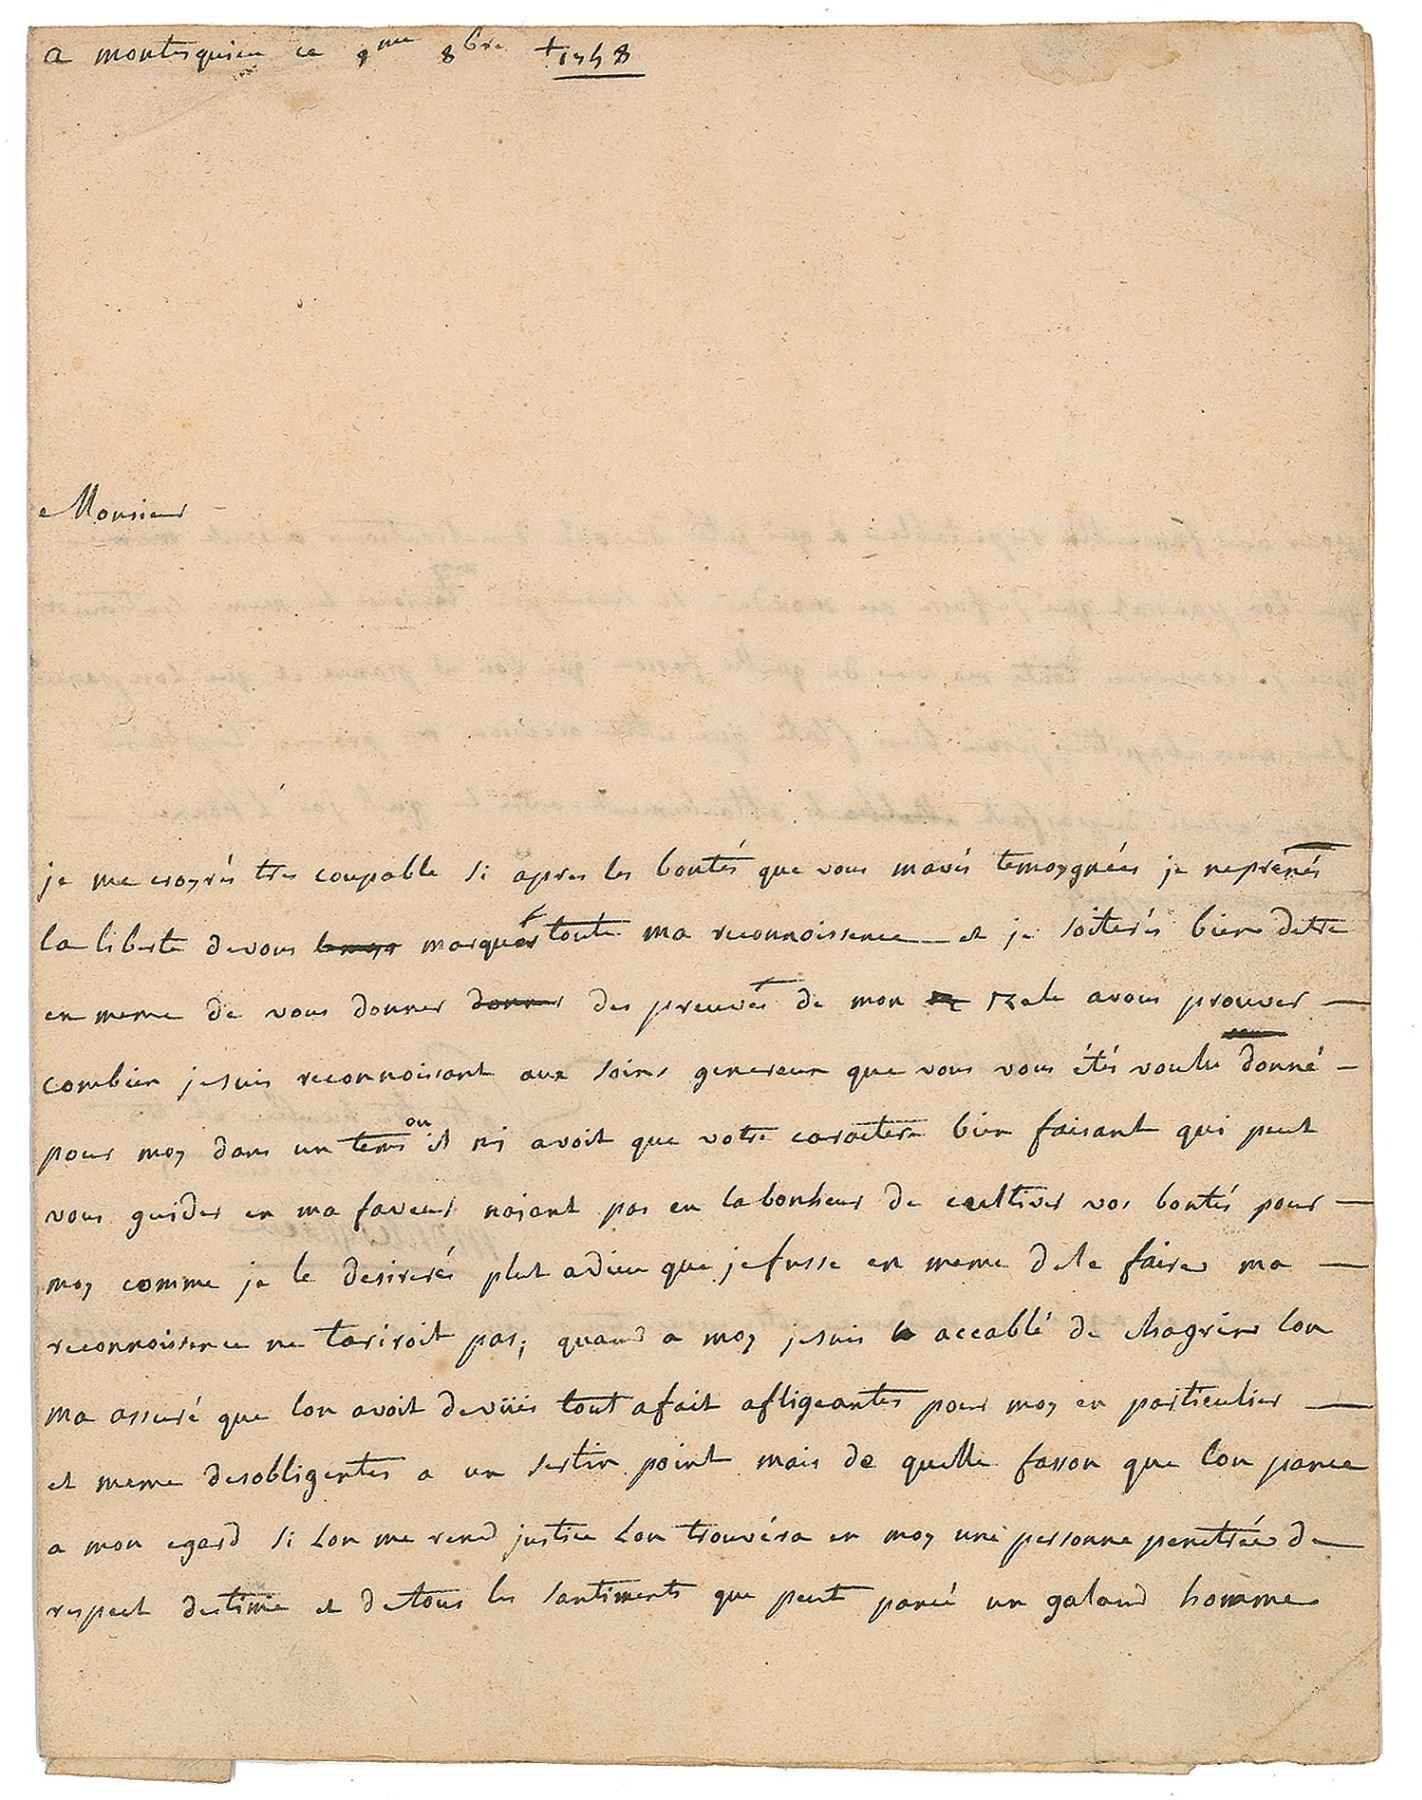 a montesquieu ce 9me 8bre 1748
Monsieur
je me croyrés tres coupable si apres les bontés que vous mavés temoygnées je neprénés
la liberte devous marquer toute ma reconnoissence et je soiterés bien detre
en meme de vous donner donner des preuves de mon zele avous prouver
combien jesuis reconnoisant aux soins genereux que vous vous étés voulu donné
pour moy dans un tems ou il ni avoit que votre caractere bien faisant qui peut
vous guider en ma faveur naiant pas eu la bonheur de cultiver vos bontés pour
moy comme je le desirerés plut adieu que jefusse en meme dele faire ma
reconnoissence ne tariroit pas, quand a moy jesuis accablé de chagrin lon
ma assuré que lon avoit devües tout afait afligeantes pour moy en particulier
et meme desobligentes a un sertin point mais de quelle fasson que lon pance
a mon egard si lon me rend justice lon trouvéra en moy une personne penetrée de
respect destime et detous les santiments que peut pancé un galand homme